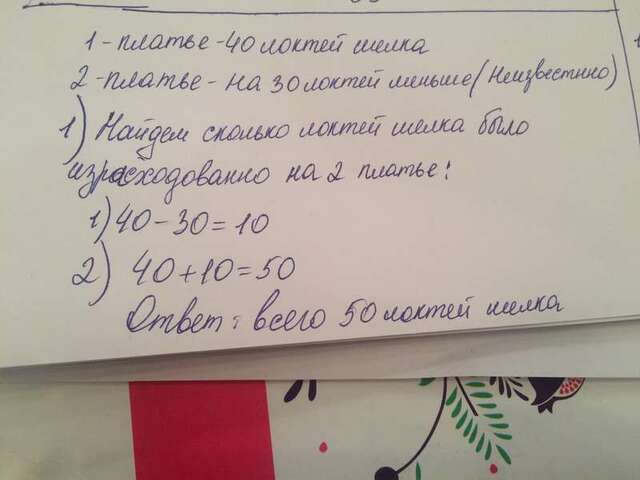 1-платье-40 локтей шелка
2-платье- на 30 локтей меньше(неизвестно)
1) Найдем сколько локтей шелка было
израсходованно на 2 платье:
1) 40-30=10
2) 40+10=50
Ответ: всего 50 локтей шелка